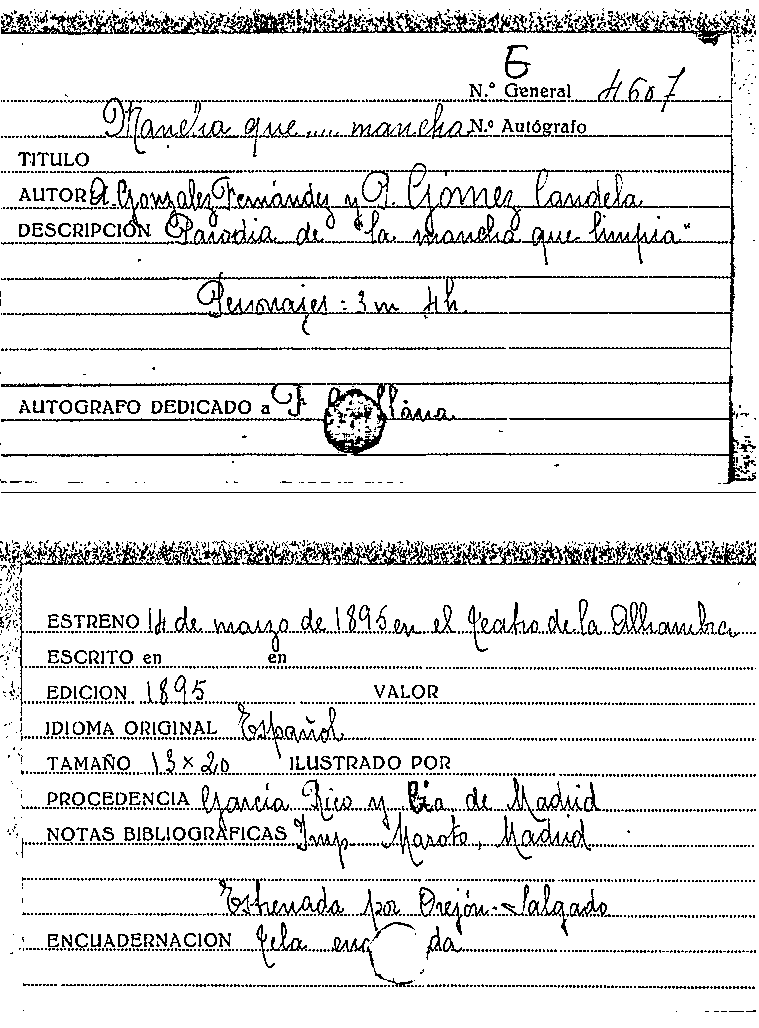 G
N.º General 4607
Mancha que.... mancha N.º Autógrafo
TITULO
AUTOR A. Gonzalez Fernández y P. Gómez Candela
DESCRIPCIÓN Parodia de "la mancha que limpia"
Personajes = 3 m 4 h.
AUTOGRAFO DEDICADO a F.
ESTRENO 14 de marzo de 1895 en el teatro de la Alhambra
ESCRITO en en
EDICION 1895 VALOR
IDIOMA ORIGINAL Español
TAMAÑO 13 x 20 ILUSTRADO POR
PROCEDENCIA García Rico y Cia de Madrid
NOTAS BIBLIOGRAFICAS Imp Maroto, Madrid
Estrenada por Orejón - Salgado
ENCUADERNACION tela